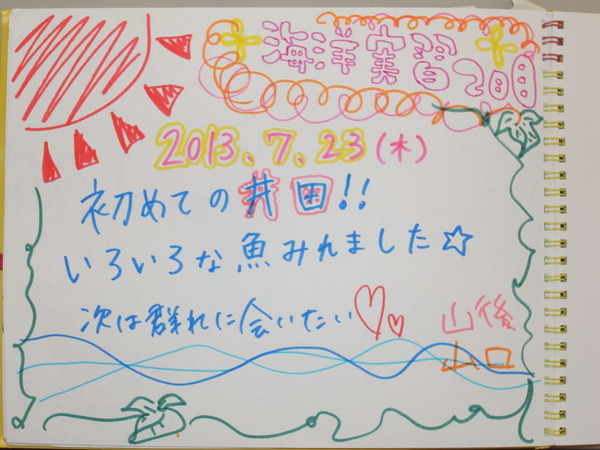 海洋実習200
2013.7.23(木)
初めての井田!!
いろいろな魚みれました☆
次は群れに会いたい♡♡
山後
山口